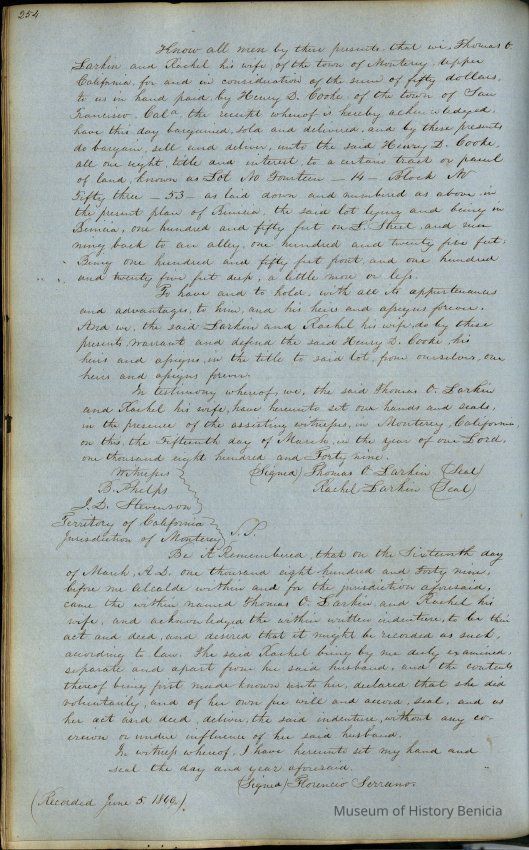 254
Know all men by these presents, that we, Thomas O.
Larkin and Rachel his wife, of the town of Monterey, Upper
California, for and in consideration of the sum of fifty dollars,
to us in hand paid, by Henry D. Cooke, of the town of San
Francisco, Cala the receipt whereof is hereby acknowledged,
have this day bargained, sold and delivered, and by these presents
do bargain, sell and deliver, unto the said Henry D. Cooke,
all our right, title and interest, to a certain tract or parcel
of land, known as Lot No Fourteen - 14 - Block No
Fifty three - 53 - as laid down and numbered as above in
the present plan of Benicia, the said lot lying and being in
Benicia, one hundred and fifty feet on Street, and run
ning back to an alley, one hundred and twenty five feet.
Being one hundred and fifty feet front and one hundred
and twenty five feet deep, a little more or less.
To have and to hold, with all its appurtenances
and advantages, to him, and his heirs and assigns forever.
And we, the said Larkin and Rachel his wife, do by these
presents, warrant and defend the said Henry D. Cooke, his
heirs and assigns, in the title to said lot, from ourselves, our
heirs and assigns forever.
In testimony whereof, we, the said Thomas O. Larkin
and Rachel his wife, have hereunto set our hands and seals,
in the presence of the assisting witnesses, in Monterey, California,
on this, the Fifteenth day of March, in the year of our Lord,
one thousand eight hundred and Forty nine.
Witnesses (Signed) Thomas O Larkin (Seal)
B. Phelps Rachel Larkin (Seal)
J. D. Stevenson
Territory of California
Jurisdiction of Monterey S.S.
Be it Remembered, that on the Sixteenth day
of March, A.D. one thousand eight hundred and Forty nine,
before me Alcalde within and for the jurisdiction aforesaid,
came the within named Thomas O. Larkin and Rachel his
wife, and acknowledged the within written indenture, to be their
act and deed, and desired that it might be recorded as such,
according to law. The said Rachel being by me duly examined,
separate and apart from her said husband, and the contents
thereof being first made known unto her, declared that she did
voluntarily, and of her own free will and accord, seal, and as
her act and deed, deliver, the said indenture, without any co-
ercion or undue influence of her said husband.
In witness whereof, I have hereunto set my hand and
seal the day and year aforesaid.
(Signed) Florencio Serrano.
(Recorded June 5.
Museum of History Benicia